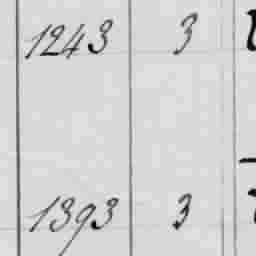 1243 3
1393 3